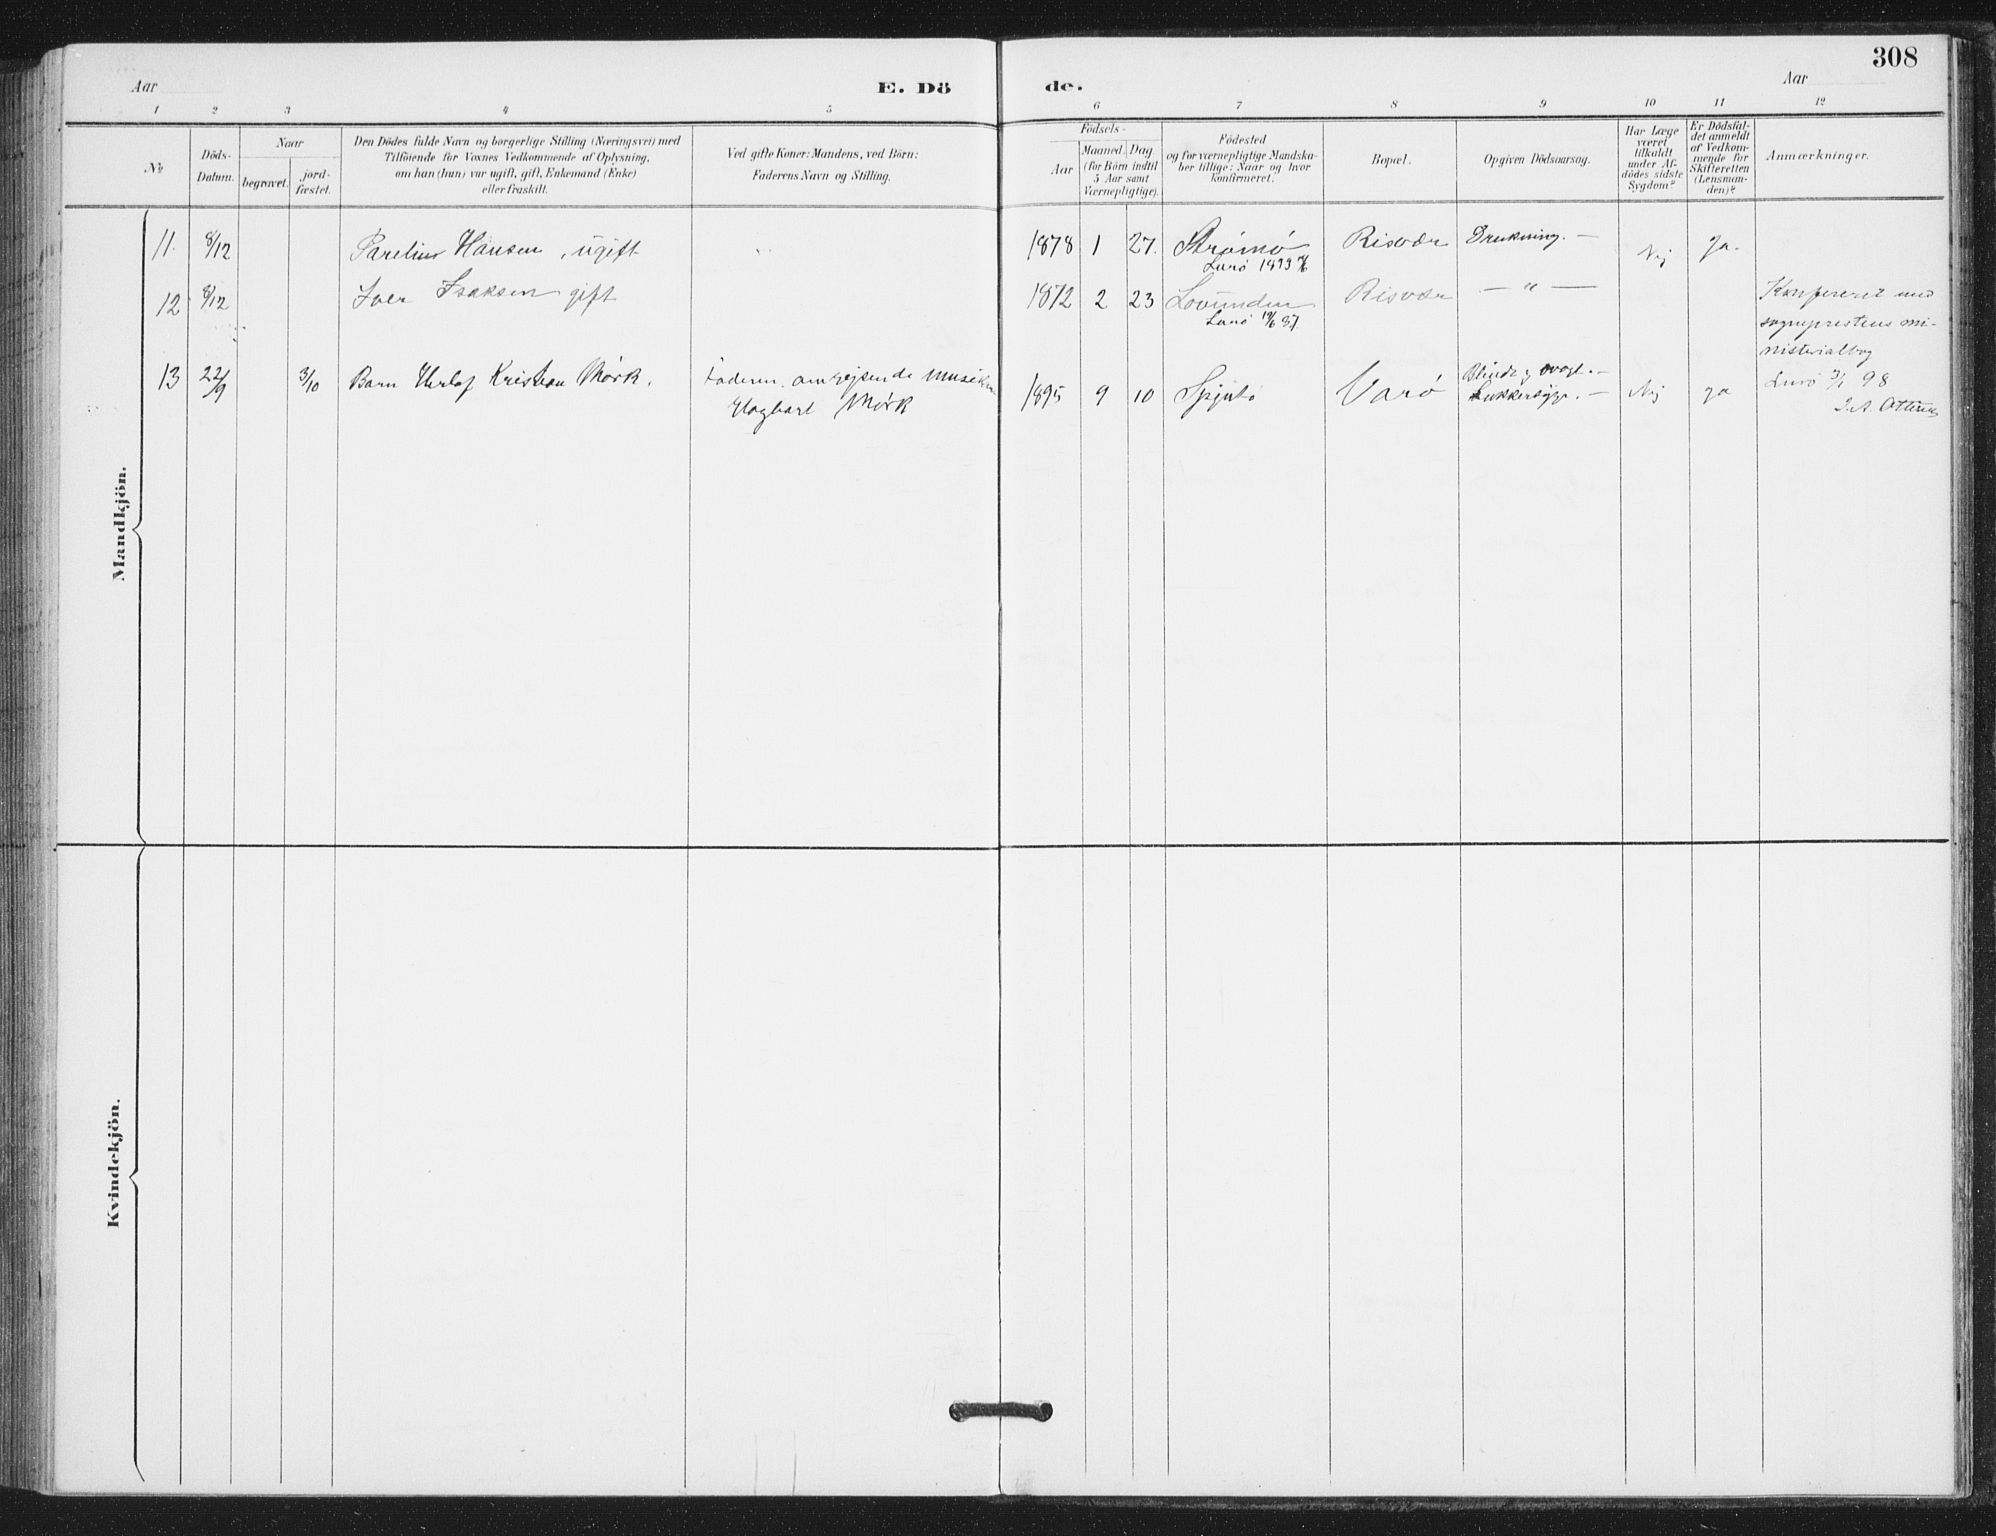 308
Aar
E. Dö
de.
Aar
1 2 3 4 5 6 7 8 9 10 11 12
No
Döds-Datum.
Naar
begravet.
jord-fæstet.
Den Dödes fulde Navn og borgerlige Stilling (Næringsvei) med
Tilföiende for Voxnes Vedkommende af Oplysning,
om han (hun) var ugift, gift, Enkemand (Enke)
eller fraskilt.
Ved gifte Koner: Mandens, ved Börn:
Faderens Navn og Stilling.
Födsels-
Aar
Maaned. Dag
(for Börn indtil
5 Aar samt
Værnepligtige).
Födested
og for værnepligtige Mandska-
ber tillige: Naar og hvor
konfirmeret.
Bopæl.
Opgiven Dödsaarsag.
Har Læge
været
tilkaldt
under Af-
dödes sidste
Sygdom?
Er Dödsfal-
det anmeldt
af Vedkom-
mende for
Skifteretten
(Lensman-
den)?
Anmærkninger.
Mandkjön.
11. 8/12 Parelius Hansen, ugift 1878 1 27. Strömö Risvær Drukning. — Nej Ja.
Lurö 1893
12 8/12 Iver Isaksen gift 1872 2 23 Lovunden Risvær — " —
Lurö 19/6 87
Konfereret med
sogneprestens mi-
nisterialbog
Lurö 3/1 98
13 22/9 3/10 Barn Herlof Kristian Mörk. Faderen. omrejsende
Hagbart Mörk
1895 9 10 Varö Nej ja
Sukkersyge. —
Kvindekjön.